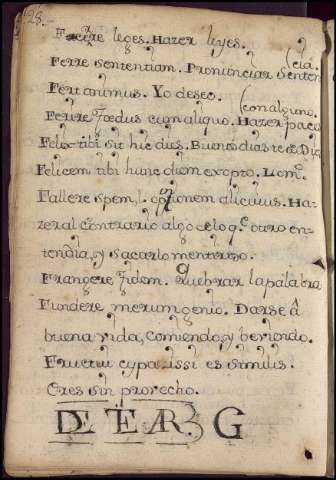 128.
Facere leges. Hazer leyes.
Ferre sententiam. Pronunciar senten
(cia.
Fert animus. Yo deseo.
Ferire fœdus cum aliquo. Hazer paces
(con alguno.
Felix tibi sit hic dies. Buenos dias te dè Dios
Felicem tibi hunc diem exopto. Lo m.o
Fallere spem, l. opinionem alicuius. Ha-
zer al contrario algo de lo q.e otro en-
tendia, y sacarlo mentiroso.
Frangere fidem. Quebrar la palabra
Fundere merum genio. Darse â
buena vida, comiendo, y beviendo.
Fructui cyparissi es similis.
Eres sin provecho.
DE G